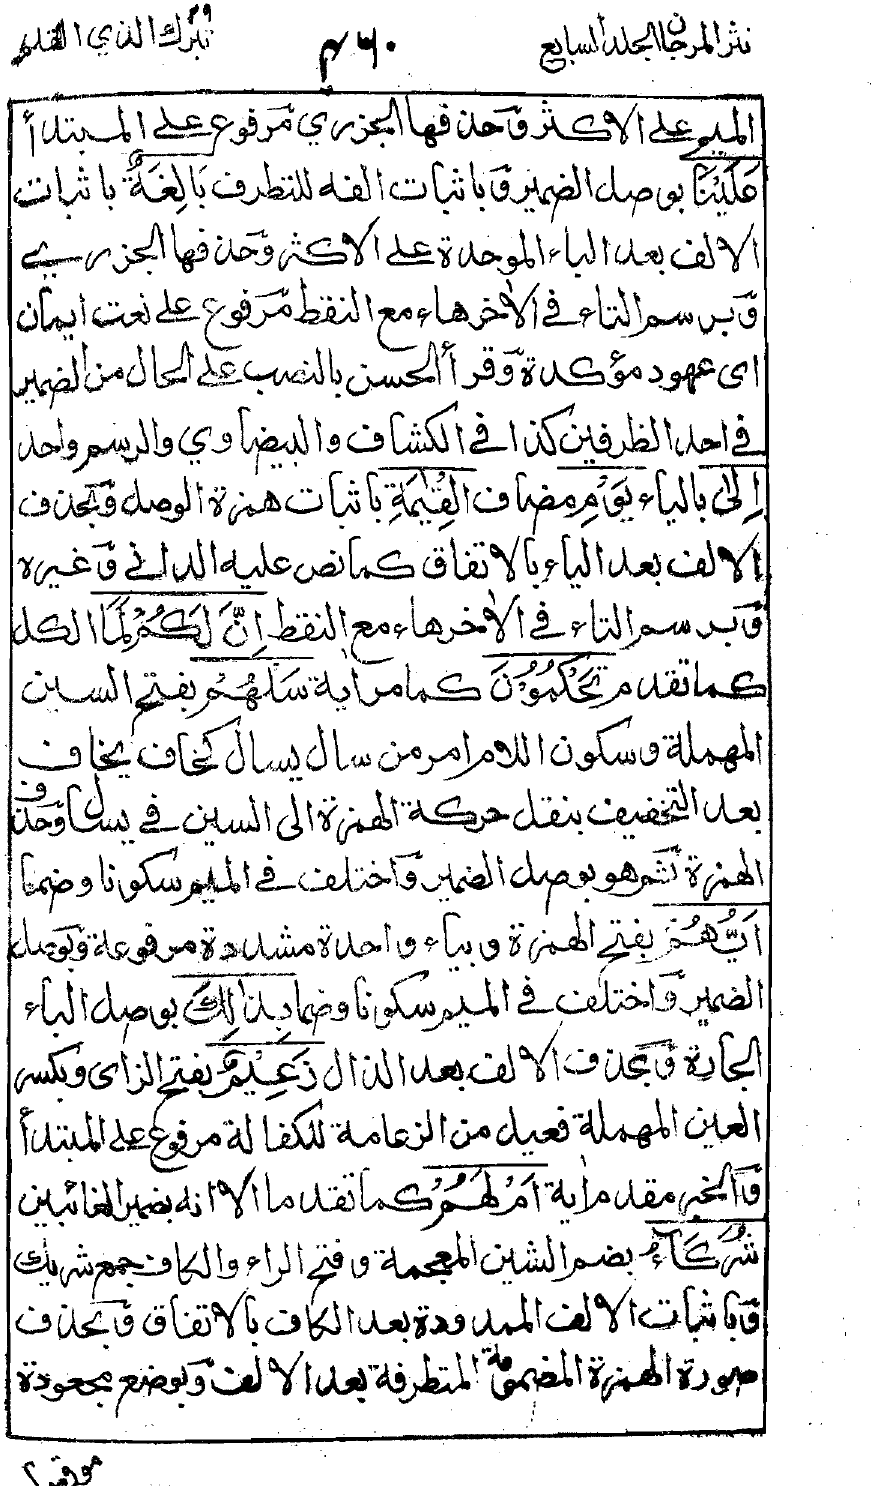 نثر المرجان الجلد السابع
٤٦٠
تبرك الذي القلم
الميم على الاكثر وحذفها الجزري مرفوع على المبتدأ
عَلَيْنَا بوصل الضمير وباثبات الفه للتطرف بَالِغَةٌ باثبات
الالف بعد الباء الموحدة على الاكثر وحذفها الجزري
وبرسم التاء في الآخر هاء مع النقط مرفوع على نعت ايمان
اى عهود مؤكدة وقرأ الحسن بالنصب على الحال من الضمير
في احد الظرفين كذا في الكشاف والبيضاوي والرسم واحد
اِلىٰ بالياء يَوْمِ مضاف القِيٰمَةِ باثبات همزة الوصل وبحذف
الالف بعد الياء بالاتفاق كما نص عليه الداني وغيره
وبرسم التاء في الآخر هاء مع النقط اِنَّ لَكُمْ لَمَا الكل
كما تقدم تَحْكُمُوْنَ كما مر اٰية سَلْهُمْ بفتح السين
المهملة وسكون اللام امر من سال يسال كخاف يخاف
بعد التخفيف بنقل حركة الهمزة الى السين في يسأل وحذف
الهمزة ثم هو بوصل الضمير واختلف في الميم سكونا وضما
اَيُّهُمْ بفتح الهمزة وبياء واحدة مشددة مرفوعة وبوصل
الضمير واختلف في الميم سكونا وضما بِذٰلِكَ بوصل الباء
الجارة وبحذف الالف بعد الذال زَعِيْمٌ بفتح الزاى وبكسر
العين المهملة فعيل من الزعامة للكفالة مرفوع على المبتدأ
والخبر مقدم اٰية اَمْ لَهُمْ كما تقدما الا انه بضمير الغائبين
شُرَكَآءُ بضم الشين المعجمة وفتح الراء والكاف جمع شريك
وباثبات الالف الممدودة بعد الكاف بالاتفاق وبحذف
صورة الهمزة المضمومة المتطرفة بعد الالف وبوضع مجعودة
موقعها